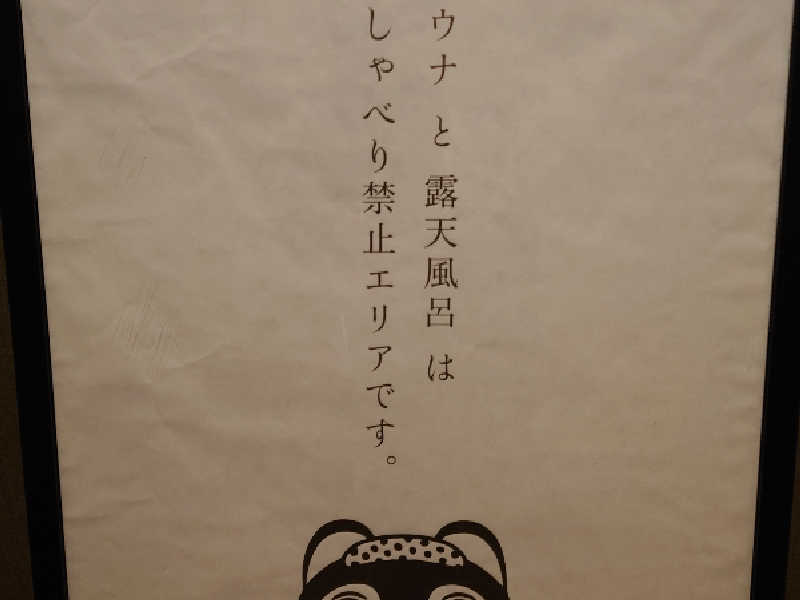 ウナ と 露天風呂 は
しゃべり禁止エリアです。